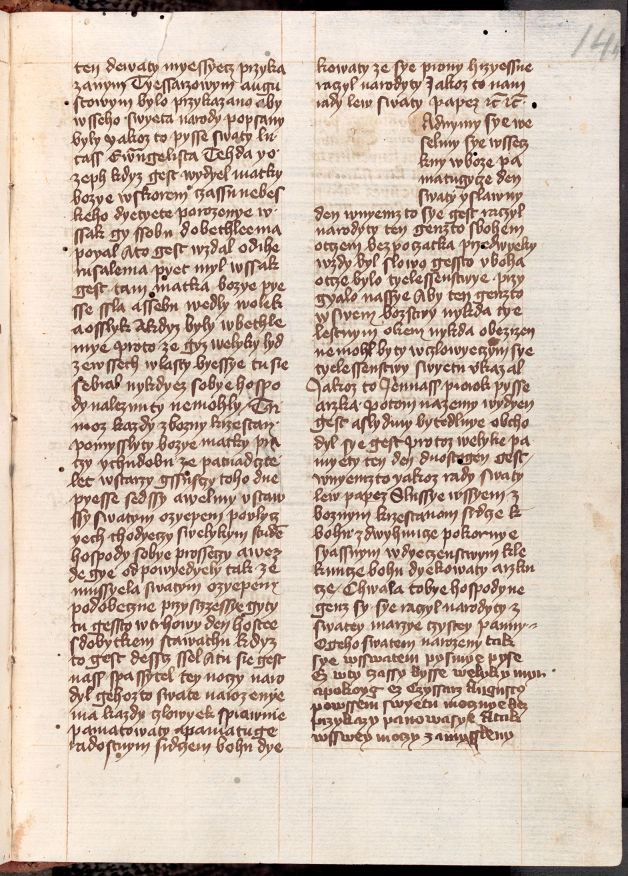 14
ten dewaty myessyecz przyka
zanym Tyessarzowym augu
stowym bylo przykazano Aby
wsseho swyeta narody popsany
byly yakoz to pysse swaty lu
cass Ewngelista Tehda yo
zeph kdyz gest wydyel matky
bozye wskorem czassu nebes
keho dyetyete porozenye w
ssak gy ssebu dobethleema
poyal Ato gest wzdal odihe
rusalema pyet myl wssak
gest tam matka bozye pye
sse ssla assebu wedly wolek
aosslyk Akdyz byly wbethle
mye proto ze gyz welyky lyd
zewssech wlasty byessye tu sie
sebral nykdyez sobye hospo
dy nalezniuty nemohly Tu
moz kazdy zbozny krzestan
pomysslyty bozye matky pra
czy ychudobu ze patnadczte
let wstarzy gssuczy toho dne
pyesse sedssy awelmy vstaw
ssy swatym ozyepem powlycz
yech chodyeczy swelykym studem
hospody sobye prossyeczy awez
de gye odpowyedyely tak ze
mussyela swatym ozyepem
podobeczne przystrzessye gyty
tu gessto wtrhowy den hostee
sdobytkem stawachu kdyz
to gest desscz ssel Atu sie gest
nass spassytel tey noczy naro
dyl gehozto swate narozenye
ma kazdy czlowyek sprawnie
pamatowaty apamatuge
radostnym srdczem bohu dye
kowaty ze sye pano krzyessne
raczyl narodyty Jakoz to nam
rady lew swaty papez
Adnymy sye we
selmy sye wssecz
kny wboze pa
matugycze den
swaty yslawny
den wnyemz to sye gest raczyl
narodyty ten genzto sbohem
otczem bez poczatka przedwyeky
wzdy byl slowo gessto vboha
otcze bylo tyelessenstwye przy
gyalo nassye Aby ten genzto
wswem bozstwy nykda tye
lestnym okem nykda obezrzen
nemohl byty wczlowyeczym sye
tyelessenstwy swyetu vkazal
Jakoz to Jeremias prorok pysse
arzka potom nazemy wydyen
gest aslydmy bytedlnye obcho
dyl sye gest protoz welyke pa
myety ten den duostogen gest
wnyemzto yakoz rady swaty
lew papez Slussye wssyem z
boznym krzestanom srdcze k
bohu zdwyhnucze pokornye
syassnym wdyeczenstwym kle
kuncze bohu dyekowaty arzku
cze Chwala tobye hospodyne
genz sy sye raczyl narodyty z
swatey marzye czystey panny
Ogeho swatem narozeny tak
sye wsswatem pysmye pysse
Ez wty czassy bysse welyky myr
apokoyg Ez Czyssarz Augustus
powssem swyetu mocznye bez
przykazy panowasse Atak
wsswey moczy zamysslyeny